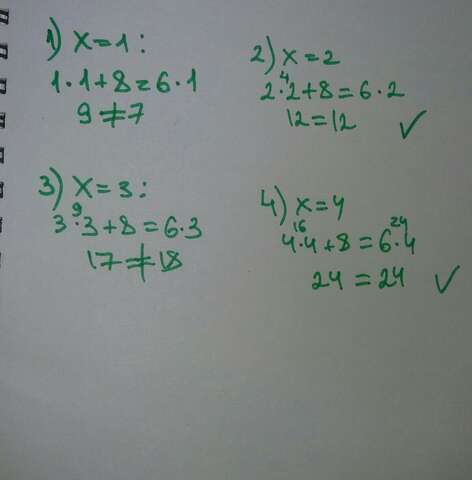 1) x=1:
1·1+8=6·1
9≠7
2) x=2
4
2·2+8=6·2
12=12 ✓
3) x=3:
9
3·3+8=6·3
17≠18
4) x=4
16 24
4·4+8=6·4
24=24 ✓